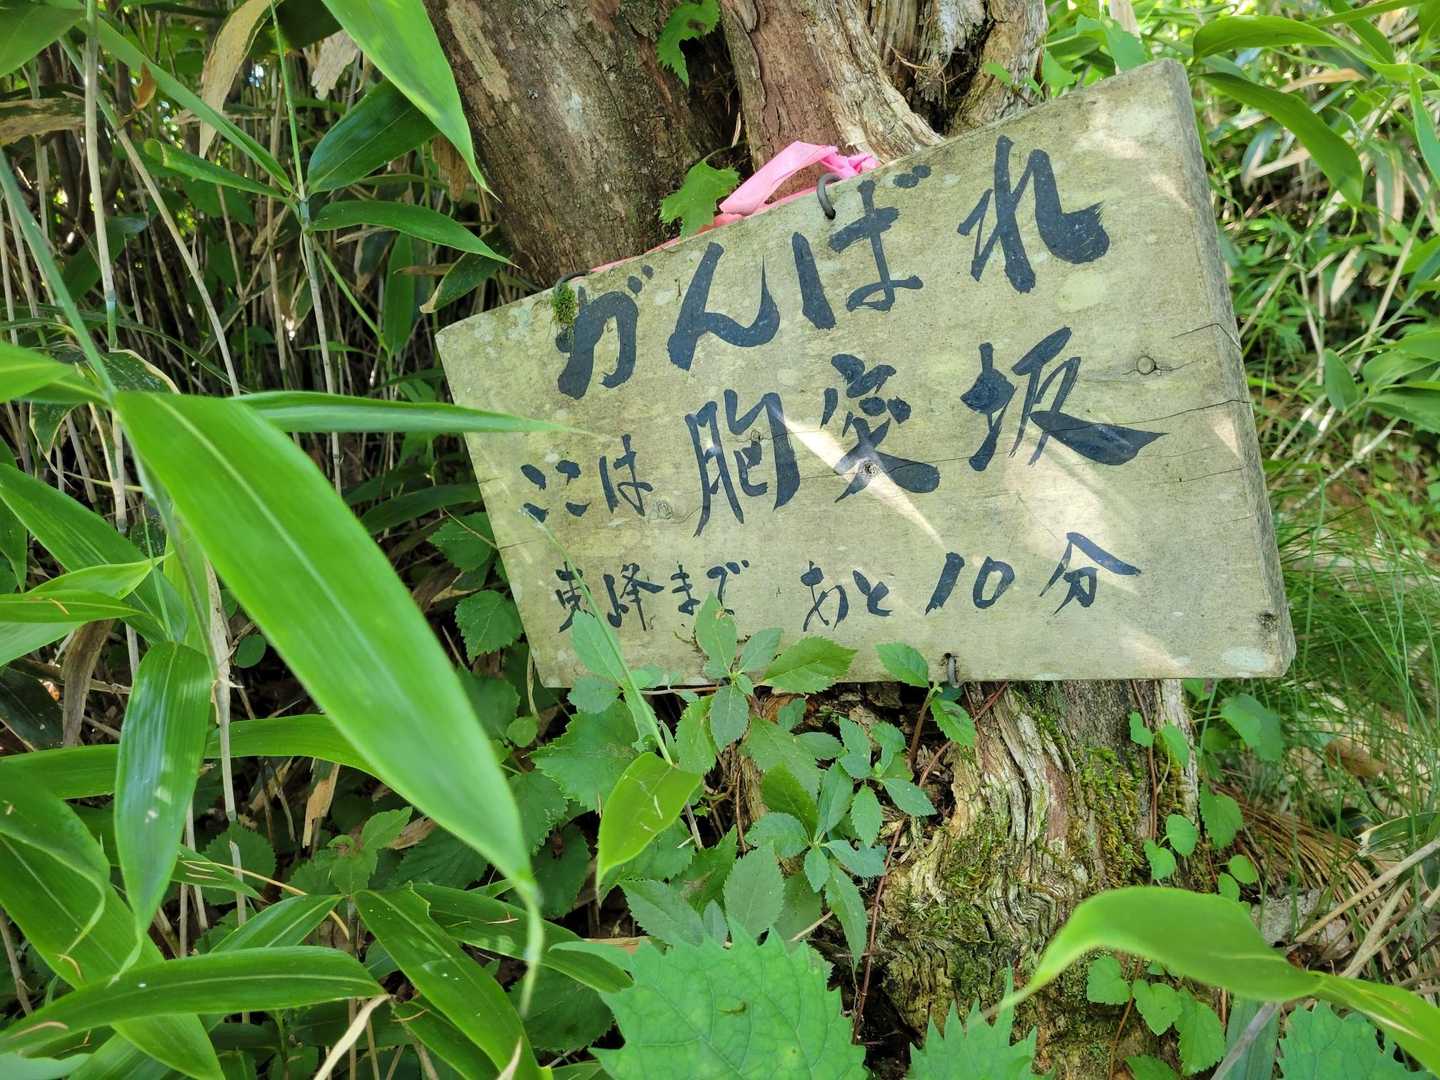 がんばれ
ここは 胸突坂
東峰まで あと10分